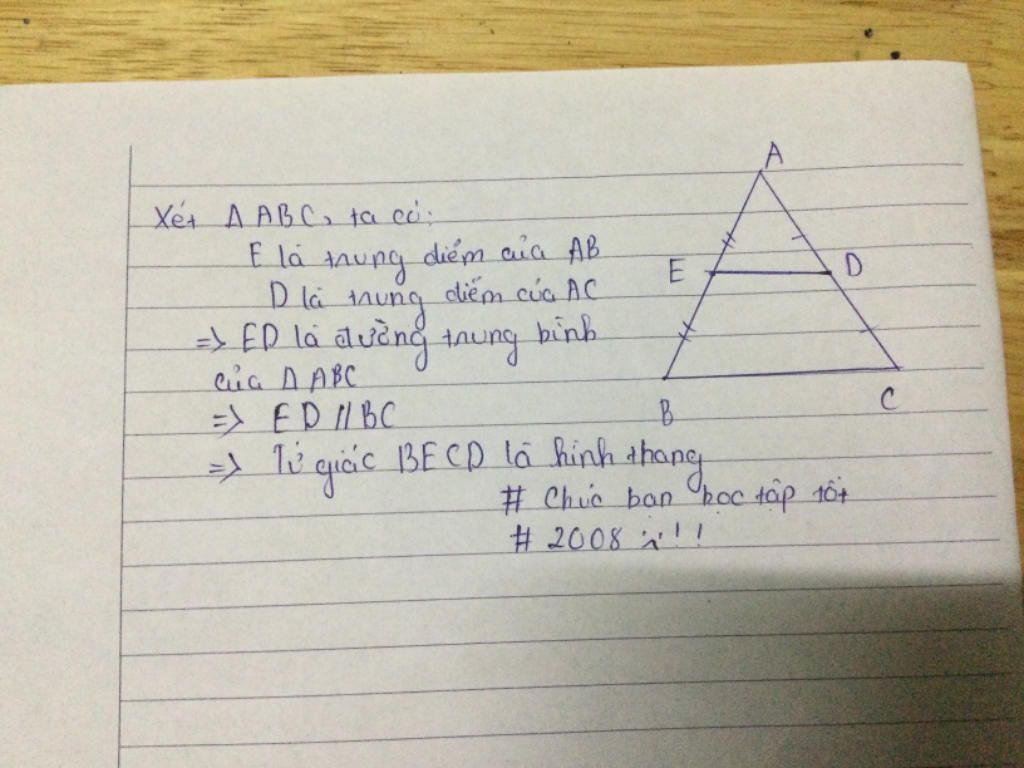 Xét Δ ABC, ta có:
E là trung điểm của AB
D là trung điểm của AC
=> ED là đường trung bình
của Δ ABC
=> ED // BC
=> Tứ giác BECD là hình thang
# Chúc bạn học tập tốt
# 2008 !!
A
E
D
B
C